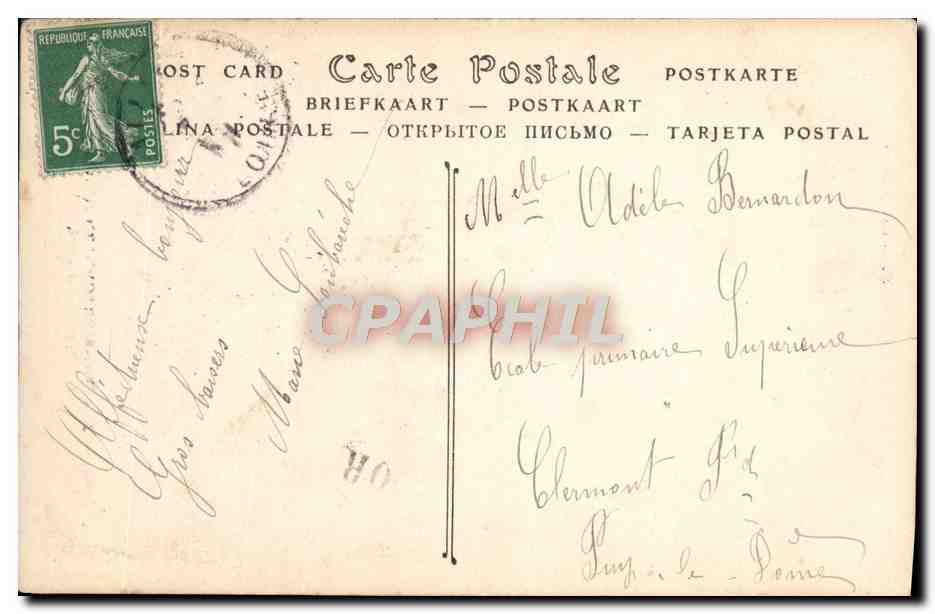 REPUBLIQUE FRANÇAISE
5c
POSTES
OST CARD Carte Postale POSTKARTE
BRIEFKAART — POSTKAART
LINA POSTALE — ОТКРЫТОЕ ПИСЬМО — TARJETA POSTAL
Affectueux bonjour
Gros baisers
Marie
OR
CPAPHIL
Melle Adèle Bernardon
Ecole primaire Supérieure
Clermont Fd
Puy-de-Dôme